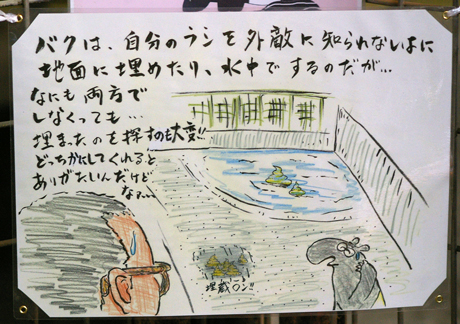 バクは、自分のフンを外敵に知られないように
地面に埋めたり、水中でするのだが…
なにも両方で
しなくっても…
埋まったのを探すのも大変!!
どっちかにしてくれると
ありがたいんだけど
なァ…
埋蔵フン!!